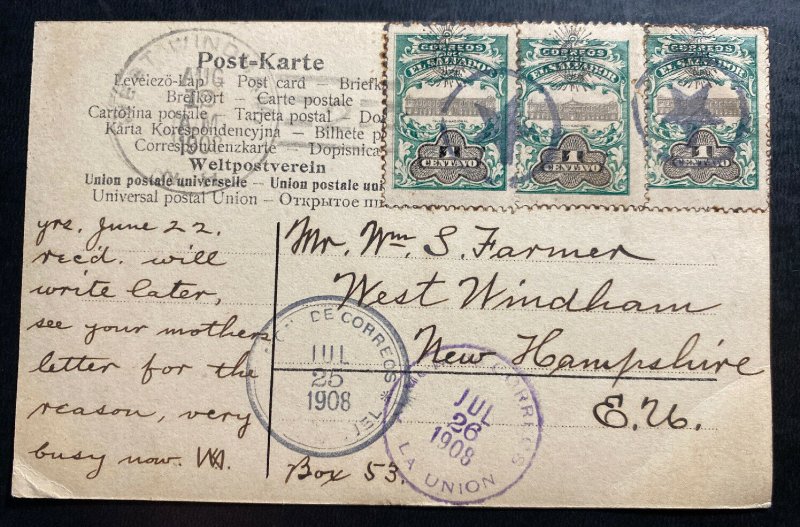 Post-Karte
Levelező-Lap Post card — Briefk
Brefkort — Carte postale
Cartolina postale — Tarjeta postal — Do
Karta Korespondencyjna — Bilhete p
Correspondenzkarte — Dopisnica
Weltpostverein
Union postale universelle — Union postale un
Universal postal Union — Открытое пи
WEST WIND
AUG
AM
CORREOS
EL SALVADOR
1
CENTAVO
CORREOS
EL SALVADOR
1
CENTAVO
CORREOS
EL SALVADOR
1
CENTAVO
yrs. June 22.
recd. will
write later,
see your mothers
letter for the
reason, very
busy now. WA.
Mr. Wm S. Farmer
West Windham
New Hampshire
E.U.
Box 53.
DE CORREOS
JUL
25
1908
CORREOS
JUL
26
1908
LA UNION